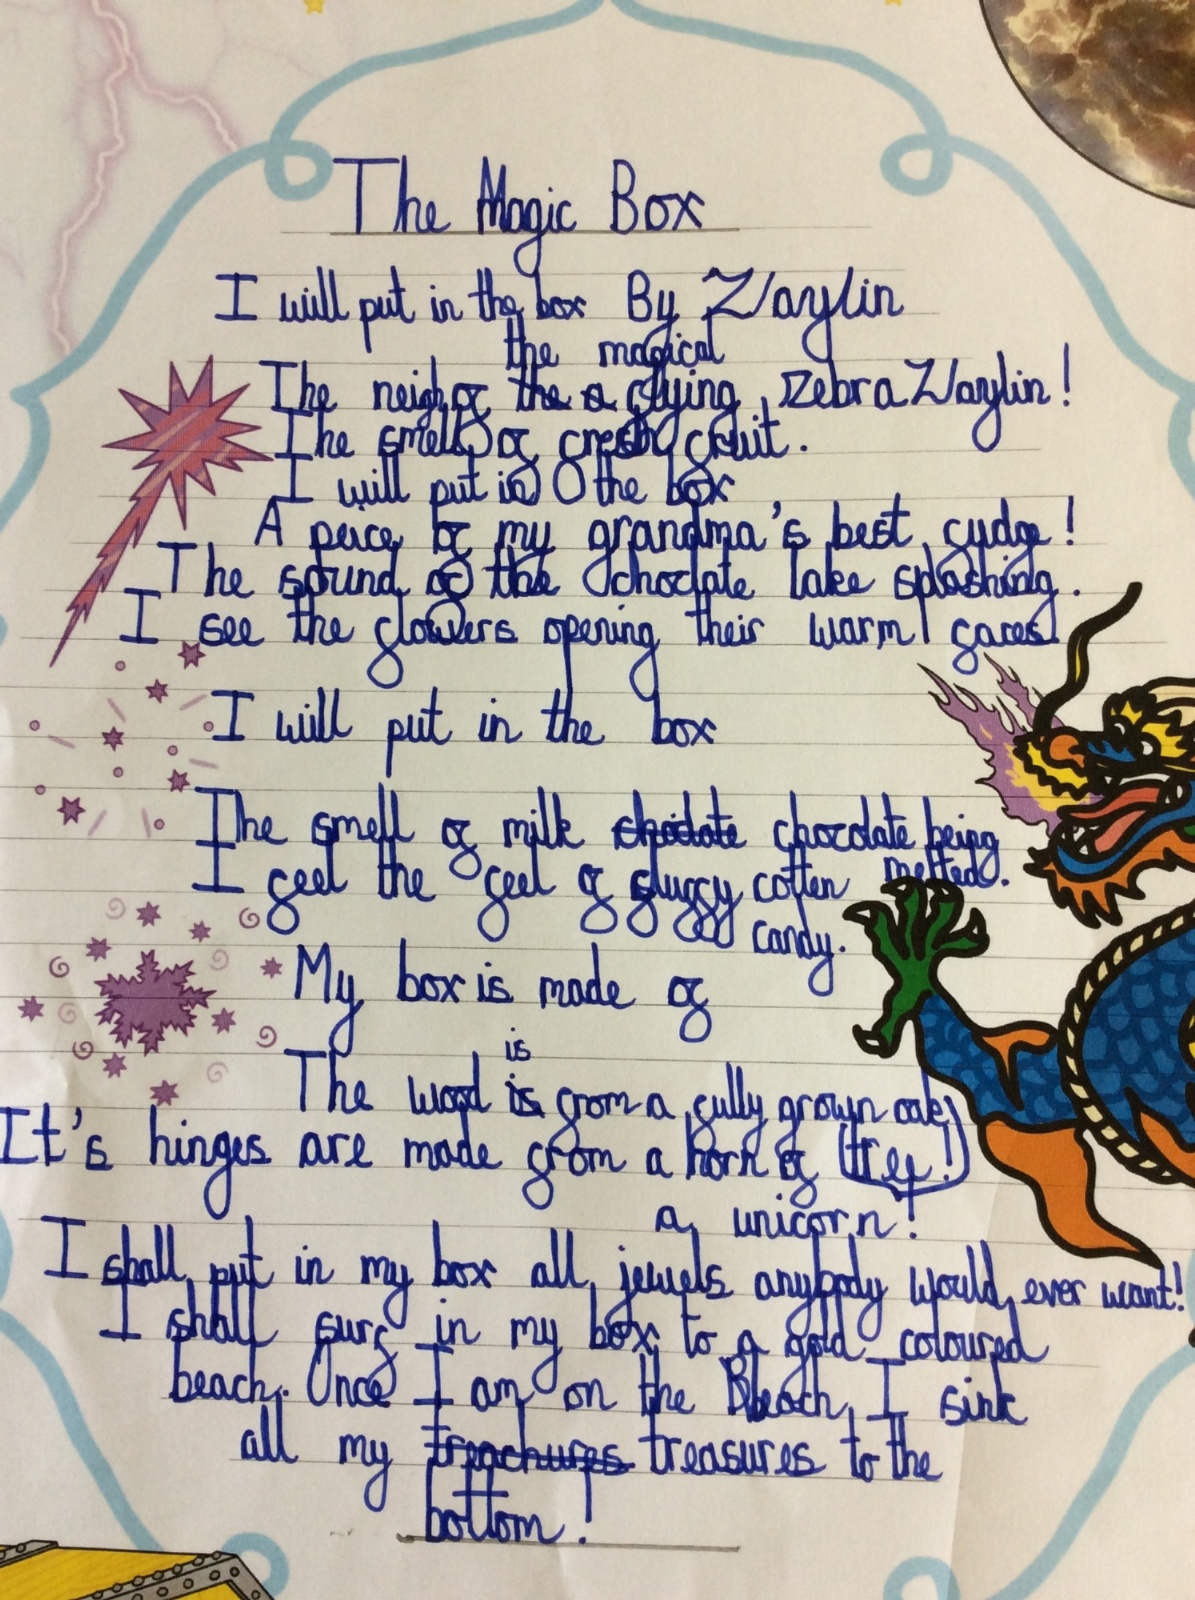 The Magic Box
I will put in the box By Zlaylin
the magical
The neigh of the a flying zebra Zlaylin!
The smell of fresh fruit.
I will put in the box
A peice of my grandma's best fudge!
The sound of the choclate lake splashing.
I see the flowers opening their warm faces.
I will put in the box
The smell of milk choclate chocolate being
melted.
I feel the feel of fluffy cotten
candy.
My box is made of
is
The wood is from a fully grown oak
It's hinges are made from a horn of (tree!)
a unicorn!
I shall put in my box all jewels anybody would ever want!
I shall surf in my box to a gold coloured
beach. Once I am on the Beach I sink
all my treachures treasures to the
bottom!